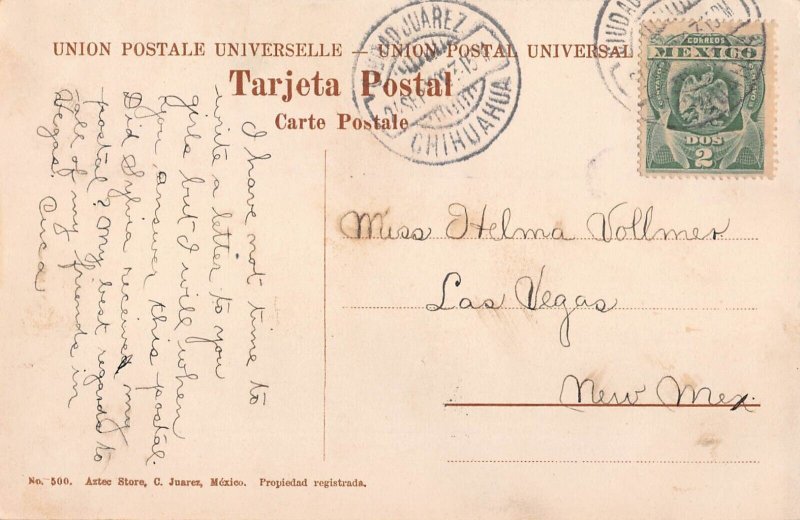 UNION POSTALE UNIVERSELLE – UNION POSTAL UNIVERSAL
Tarjeta Postal
Carte Postale
CIUDAD JUAREZ
CHIHUAHUA
CORREOS
MEXICO
DOS
2
I have not time to
write a letter to you
girls but I will when
you answer this postal.
Did Sylvia receive my
postal? My best regards to
all of my friends in
Vegas. Cuca
Miss Helma Vollmer
Las Vegas
New Mex
No. 500. Aztec Store, C. Juarez, México. Propiedad registrada.